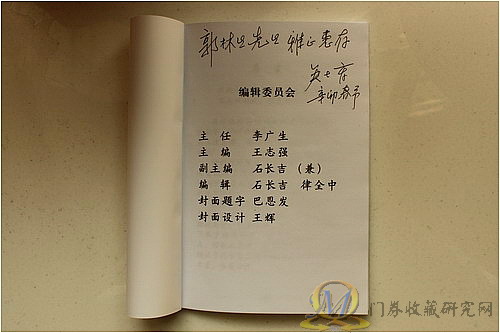 郭林生先生 雅正惠存
辛卯春节
编辑委员会
主 任 李广生
主 编 王志强
副主编 石长吉 (兼)
编 辑 石长吉 律全中
封面题字 巴恩发
封面设计 王辉
门券收藏研究网